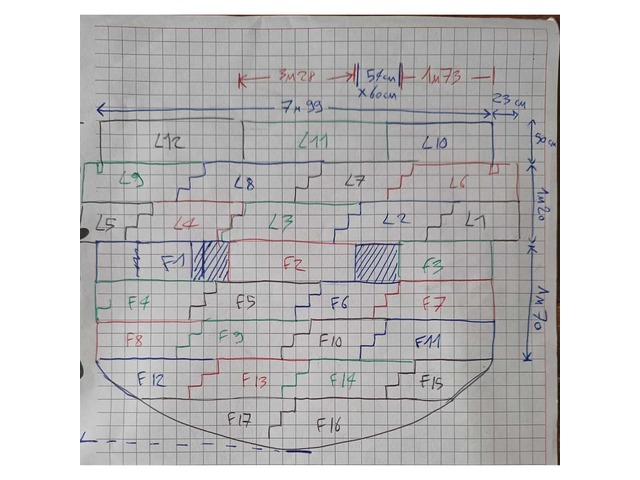 3m28 54cm 1m73
x60cm
7m99 23cm
L12 L11 L10 50cm
L9 L8 L7 L6
1m20
L5 L4 L3 L2 L1
F1 F2 F3
F4 F5 F6 F7
1m70
F8 F9 F10 F11
F12 F13 F14 F15
F17 F16